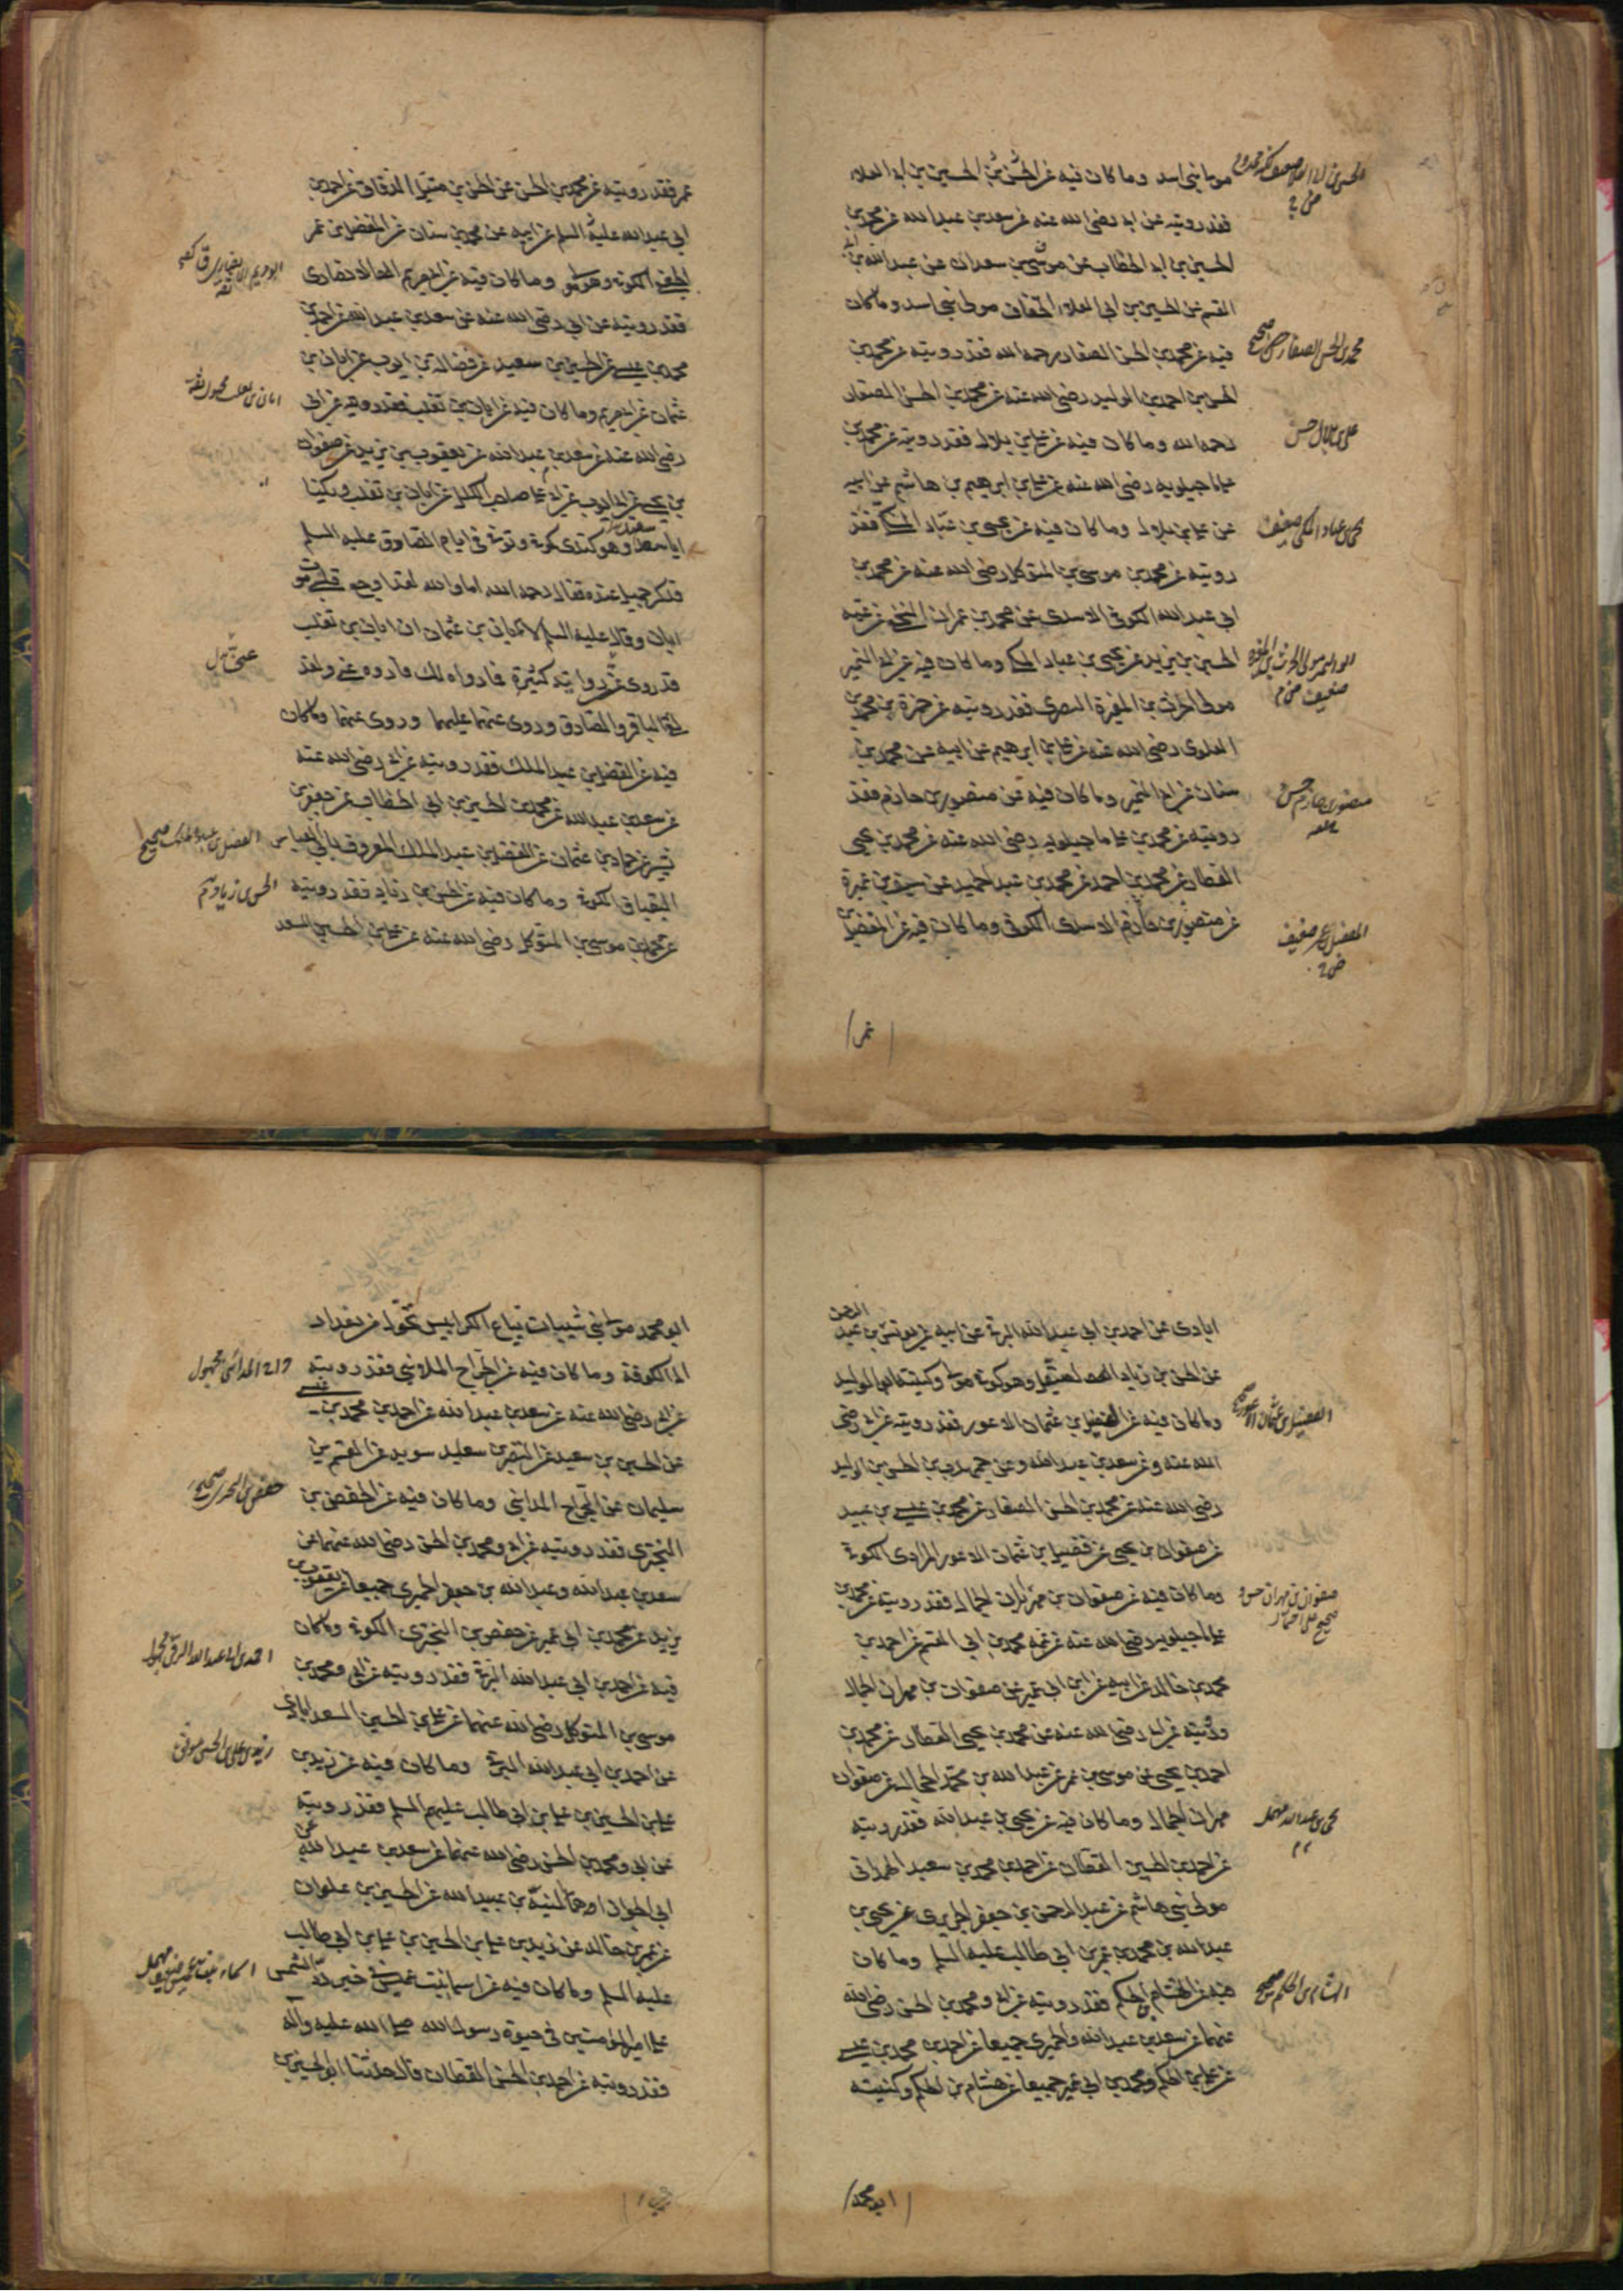 مولى بني اسد وما كان فيه عن الحسن بن الحسين بن ابي العلاء
فقد رويته عن ابي رضى الله عنه عن سعد بن عبد الله عن محمد بن
الحسين بن ابي الخطاب عن موسى بن سعدان عن عبد الله بن ابي
القسم عن الحسين بن ابي العلاء الخفاف مولى بني اسد وما كان
فيه عن محمد بن الحسن الصفار رحمه الله فقد رويته عن محمد بن
الحسن بن احمد بن الوليد رضى الله عنه عن محمد بن الحسن الصفار
رحمه الله وما كان فيه عن علي بن بلال فقد رويته عن محمد بن
علي ماجيلويه رضى الله عنه عن علي بن ابرهيم بن هاشم عن ابيه
عن علي بن بلال وما كان فيه عن يحيى بن عباد المكي فقد
رويته عن محمد بن موسى بن المتوكل رضى الله عنه عن محمد بن
ابي عبد الله الكوفي الاسدى عن محمد بن عمران النخعي عن عمه
الحسين بن يزيد عن يحيى بن عباد المكي وما كان فيه عن ابي النمير
مولى الحرث بن المغيرة النصرى فقد رويته عن حمزة بن محمد
العلوى رضى الله عنه عن علي بن ابرهيم عن ابيه عن محمد بن
سنان عن ابي النمير وما كان فيه عن منصور بن حازم فقد
رويته عن محمد بن علي ماجيلويه رضى الله عنه عن محمد بن يحيى
العطار عن محمد بن احمد عن محمد بن عبد الحميد عن سيف بن عميرة
عن منصور بن حازم الاسدى الكوفي وما كان فيه عن المفضل بن
محمد بن الحسن الصفار صحيح
على بن بلال حسن
يحيى بن عباد المكي ضعيف
منصور بن حازم حسن
المفضل بن عمر ضعيف
عمر
عمر فقد رويته عن محمد بن الحسن عن الحسن بن متيل الدقاق عن احمد بن
ابي عبد الله عليه السلم عن ابيه عن محمد بن سنان عن المفضل بن عمر
الجعفي الكوفي وهو مولى وما كان فيه عن ابي مريم الانصارى
فقد رويته عن ابي رضى الله عنه عن سعد بن عبد الله عن احمد بن
محمد بن عيسى عن الحسين بن سعيد عن فضالة بن ايوب عن ابان بن
عثمان عن ابي مريم وما كان فيه عن ابان بن تغلب فقد رويته عن ابي
رضى الله عنه عن سعد بن عبد الله عن يعقوب بن يزيد عن صفوان
بن يحيى عن ابي ايوب عن ابي علي صاحب الكلل عن ابان بن تغلب ويكنى
ابا سعيد وهو كندى كوفي وتوفي في ايام الصادق عليه السلم
فذكر جميل عنده فقال رحمه الله اما والله لقد اوجع قلبي موت
ابان وقال عليه السلم لابان بن عثمان ان ابان بن تغلب
قد روى عني رواية كثيرة فما رواه لك فاروه عني ولقد
لقي الباقر والصادق وروى عنهما عليهما وروى عنهما وما كان
فيه عن الفضل بن عبد الملك فقد رويته عن ابي رضى الله عنه
عن سعد بن عبد الله عن محمد بن الحسين بن ابي الخطاب عن جعفر بن
بشير عن حماد بن عثمان عن الفضل بن عبد الملك المعروف بابي العباس
البقباق الكوفي وما كان فيه عن الحسن بن زياد فقد رويته
عن محمد بن موسى بن المتوكل رضى الله عنه عن علي بن الحسين السعد
ابان بن تغلب مجهول ثقة
الفضل بن عبد الملك صحيح
ابادى عن احمد بن ابي عبد الله البرقي عن ابيه عن يونس بن عبد الرحمن
عن الحسن بن زياد الصيقل وهو كوفي مولى وكنيته ابو الوليد
وما كان فيه عن الفضيل بن عثمان الاعور فقد رويته عن ابي رضى
الله عنه عن سعد بن عبد الله وعن محمد بن الحسن بن الوليد
رضى الله عنه عن محمد بن الحسن الصفار عن محمد بن عيسى بن عبيد
عن صفوان بن يحيى عن فضيل بن عثمان الاعور المرادى الكوفي
وما كان فيه عن صفوان بن مهران الجمال فقد رويته عن محمد بن
علي ماجيلويه رضى الله عنه عن عمه محمد بن ابي القسم عن احمد بن
محمد بن خالد عن ابيه عن ابن ابي عمير عن صفوان بن مهران الجمال
ورويته عن ابي رضى الله عنه عن محمد بن يحيى العطار عن محمد بن
احمد بن يحيى عن موسى بن عمر عن عبد الله بن محمد الحجال عن صفوان
مهران الجمال وما كان فيه عن يحيى بن عبد الله فقد رويته
عن احمد بن الحسين القطان عن احمد بن محمد بن سعيد الهمداني
مولى بني هاشم عن عبد الرحمن بن جعفر الحريرى عن يحيى بن
عبد الله بن محمد بن عمر بن ابي طالب عليه السلم وما كان
فيه عن هشام بن الحكم فقد رويته عن ابي ومحمد بن الحسن رضى الله
عنهما عن سعد بن عبد الله والحميرى جميعا عن احمد بن محمد بن عيسى
عن علي بن الحكم ومحمد بن ابي عمير جميعا عن هشام بن الحكم وكنيته
الفضيل بن عثمان الاعور
يحيى بن عبد الله مهمل
هشام بن الحكم صحيح
ابو محمد
ابو محمد مولى بني شيبان بياع الكرابيس تحول من بغداد
الى الكوفة وما كان فيه عن الجراح المدايني فقد رويته
عن ابي رضى الله عنه عن سعد بن عبد الله عن احمد بن محمد بن عيسى
عن الحسين بن سعيد عن النضر بن سويد عن القسم بن
سليمان عن الجراح المدايني وما كان فيه عن حفص بن
البخترى فقد رويته عن ابي ومحمد بن الحسن رضى الله عنهما عن
سعد بن عبد الله وعبد الله بن جعفر الحميرى جميعا عن يعقوب بن
يزيد عن محمد بن ابي عمير عن حفص بن البخترى الكوفي وما كان
فيه عن احمد بن ابي عبد الله البرقي فقد رويته عن ابي ومحمد بن
موسى بن المتوكل رضى الله عنهما عن علي بن الحسين السعدابادى
عن احمد بن ابي عبد الله البرقي وما كان فيه عن زيد بن
علي بن الحسين بن علي بن ابي طالب عليهم السلم فقد رويته
عن ابي ومحمد بن الحسن رضى الله عنهما عن سعد بن عبد الله عن
ابي الجوزاء المنبه بن عبيد الله عن الحسين بن علوان
عن عمرو بن خالد عن زيد بن علي بن الحسين بن علي بن ابي طالب
عليه السلم وما كان فيه عن اسما بنت عميس في خبر رد الشمس
على امير المؤمنين في حيوة رسول الله صلى الله عليه وآله
فقد رويته عن احمد بن الحسن القطان قال حدثنا ابو الحسين
حفص بن البخترى صحيح
زيد بن علي بن الحسين موثق